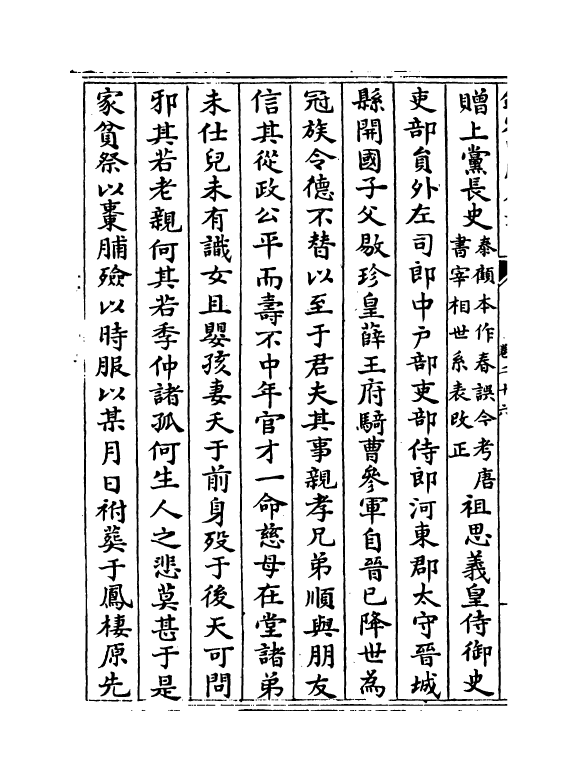 卷二十六
贈上黨長史
泰顧本作春誤今考唐
書宰相世系表改正
祖思義皇侍御史
吏部員外左司郎中户部吏部侍郎河東郡太守晉城
縣開國子父敭珍皇薛王府騎曹參軍自晉已降世為
冠族令德不替以至于君夫其事親孝兄弟順與朋友
信其從政公平而壽不中年官才一命慈母在堂諸弟
未仕兒未有識女且嬰孩妻夭于前身歿于後天可問
邪其若老親何其若季仲諸孤何生人之悲莫甚于是
家貧祭以棗脯殮以時服以某月日祔葬于鳳棲原先